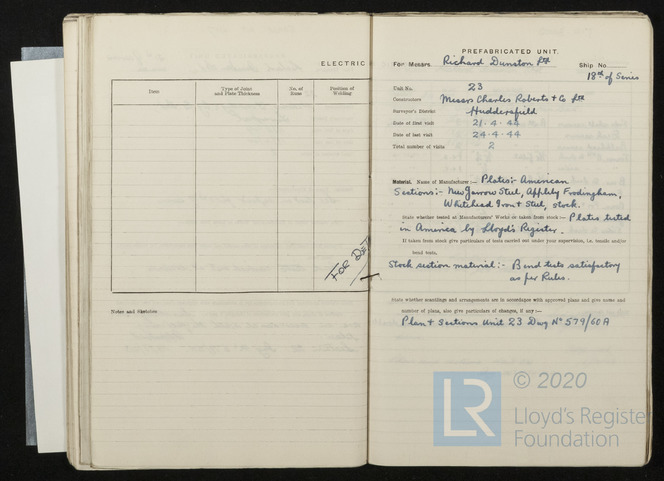 ELECTRIC
Item
Type of Joint and Plate Thickness
No. of Runs
Position of Welding
FOR DET
Notes and Sketches
PREFABRICATED UNIT.
For Messrs. Richard Dunston Ltd Ship No.
18th of Series
Unit No. 23
Constructors Messrs Charles Roberts & Co Ltd
Surveyor's District Huddersfield
Date of first visit 21-4-44
Date of last visit 24-4-44
Total number of visits 2
Material. Name of Manufacturer :— Plates:- American
Sections:- New Jarrow Steel, Appleby Frodingham,
Whitehead Iron & Steel, stock.
State whether tested at Manufacturers' Works or taken from stock :— Plates tested
in America by Lloyd's Register.
If taken from stock give particulars of tests carried out under your supervision, i.e. tensile and/or
bend tests.
Stock section material:- Bend tests satisfactory
as per Rules.
State whether scantlings and arrangements are in accordance with approved plans and give dates and
number of plans, also give particulars of changes, if any :—
Plan & Sections Unit 23 Dwg No 579/60A
LR
© 2020
Lloyd's Register
Foundation